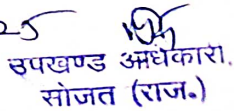 उपखण्ड अधिकारी,
सोजत (राज.)